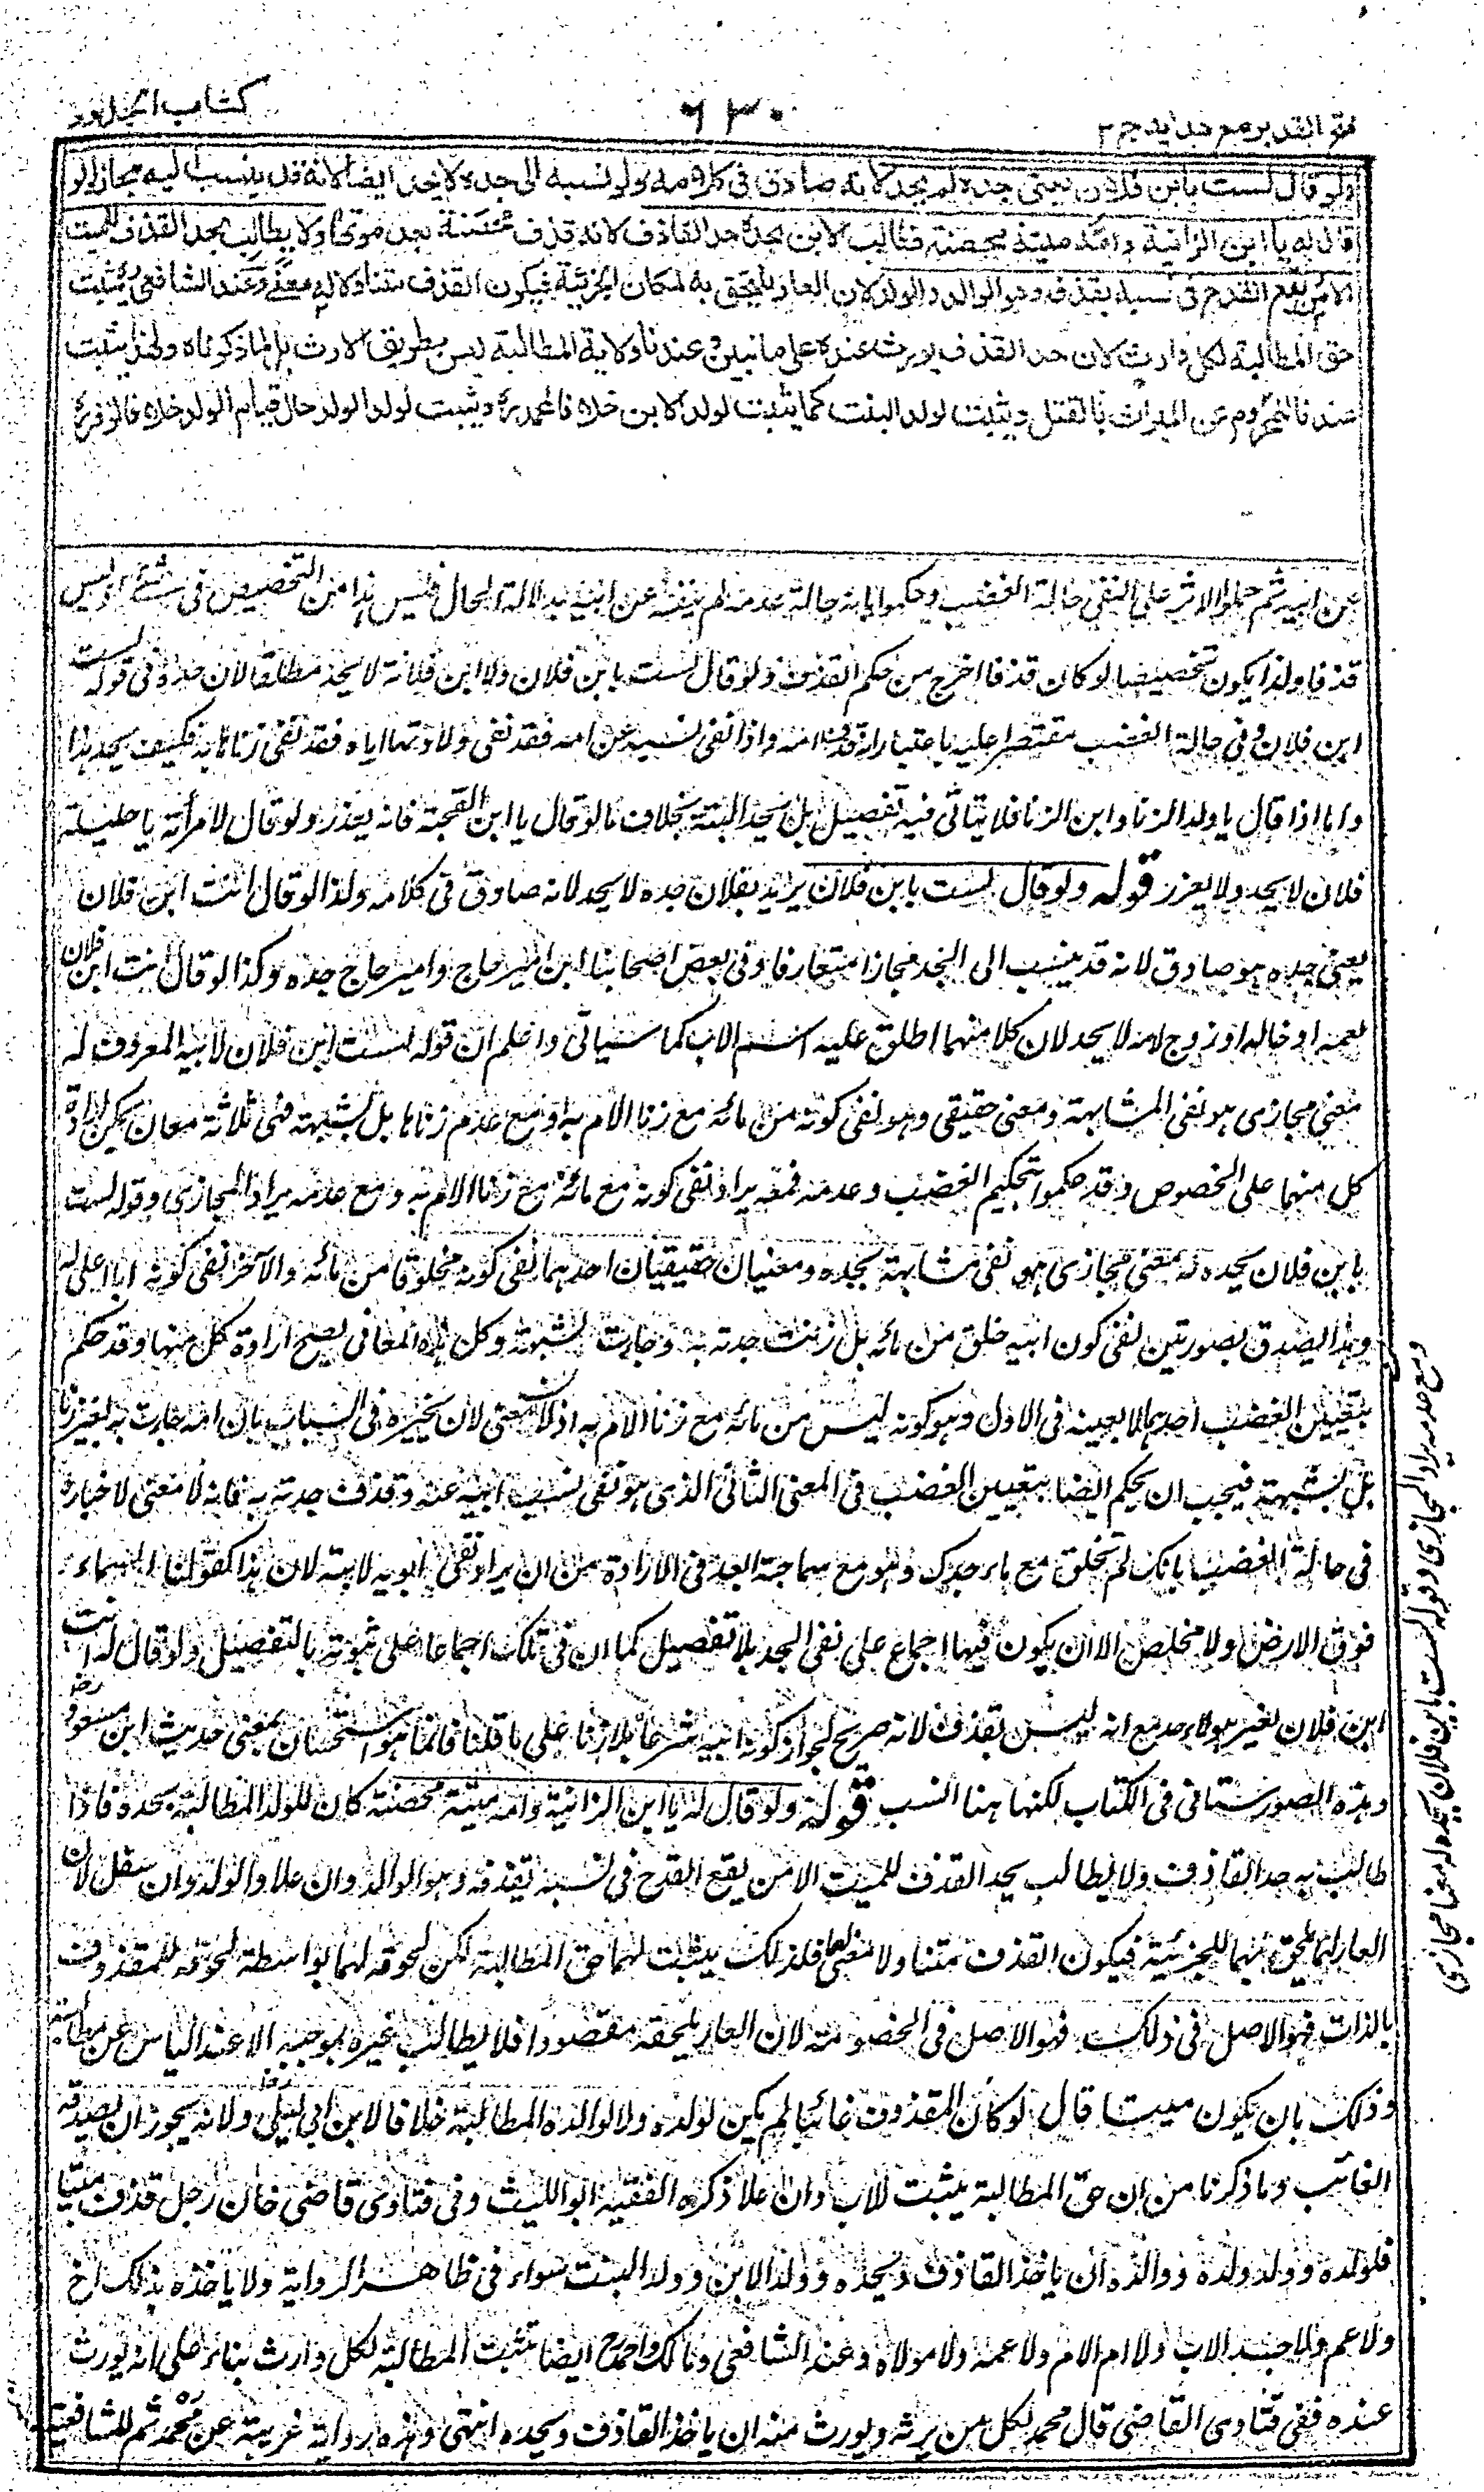 فتح القدير مع هدايه ج ٢
٦٣٠
كتاب الحدود
ولو قال لست بابن فلان يعني جده لم يحد لانه صادق في كلامه ولو نسبه الى جده لا يحد ايضا لانه قد ينسب اليه مجازا ولو
قال له يا ابن الزانية وامه ميتة محصنة فطالب الابن بحده حد القاذف لانه قذف محصنة بعد موتها ولا يطالب بحد القذف للميت
الا من يقع القدح في نسبه بقذفه وهو الوالد والولد لان العار يلتحق به لمكان الجزئية فيكون القذف متناولا له معنى وعند الشافعي رح يثبت
حق المطالبة لكل وارث لان حد القذف يورث عنده على ما نبين وعندنا ولاية المطالبة ليس بطريق الارث بل لما ذكرناه ولهذا يثبت
عندنا للمحروم عن الميراث بالقتل ويثبت لولد البنت كما يثبت لولد الابن خلافا لمحمد رح ويثبت لولد الولد حال قيام الولد خلافا لزفر رح
عن ابيه ثم حملوا الاثر على النفي حالة الغضب وحكموا بانه حالة عدمه لم ينفه عن ابيه بدلالة الحال فليس هذا من التخصيص في شئ اذ ليس
قذفا ولذا يكون تخصيصا لو كان قذفا اخرج من حكم القذف ولو قال لست بابن فلان ولا ابن فلانة لا يحد مطلقا لان حده في قوله لست
ابن فلان وفي حالة الغضب مقتصرا عليه باعتبار انه قذف امه واذا نفى نسبه عن امه فقد نفى ولادتها اياه فقد نفى زناها به فكيف يحد بهذا
واما اذا قال يا ولد الزنا وابن الزنا فلا يتاتى فيه تفصيل بل يحد البتة بخلاف ما لو قال يا ابن القحبة فانه يعذر ولو قال لامرأته يا حليلة
فلان لا يحد ولا يعزر قوله ولو قال لست بابن فلان يريد بفلان جده لا يحد لانه صادق في كلامه ولذا لو قال انت ابن فلان
يعني جده هو صادق لانه قد ينسب الى الجد مجازا متعارفا وفي بعض اصحابنا ابن امير حاج وامير حاج جده وكذا لو قال انت ابن فلان
لعمه او خاله او زوج امه لا يحد لان كلا منهما اطلق عليه اسم الاب كما سيأتي واعلم ان قوله لست ابن فلان لابيه المعروف له
معنى مجازي هو نفي المشابهة ومعنى حقيقي وهو نفي كونه من مائه مع زنا الام به او مع عدم زناها بل بشبهة فهي ثلاثة معان يمكن ارادة
كل منها على الخصوص وقد حكموا بتحكيم الغضب وعدمه فمعه يراد نفي كونه مع مائه مع زنا الام به ومع عدمه يراد المجازي وقوله لست
بابن فلان بجده له معنى مجازي هو نفي مشابهته بجده ومعنيان حقيقيان احدهما نفي كونه مخلوقا من مائه والآخر نفي كونه ابا اعلى له
وهذا يصدق بصورتين نفي كون ابيه خلق من مائه بل زنت جدته به وجاءت بشبهة وكل هذه المعاني يصح ارادة كل منها وقد حكم
بتعيين الغضب احدهما لا بعينه في الاول وهو كونه ليس من مائه مع زنا الام به اذ لا معنى لان يخبره في السباب بان امه جاءت به بغير زنا
بل بشبهة فيجب ان يحكم ايضا بتعيين الغضب في المعنى الثاني الذي هو نفي نسب ابيه عنه وقذف جدته به فانه لا معنى لاخباره
في حالة الغضب بانك لم تخلق مع ماء جدك وهو مع سماجته ابعد في الارادة من ان يراد نفي ابوته لابيه لان هذا كقولنا السماء
فوق الارض ولا مخلص الا ان يكون فيها اجماع على نفي الحد بلا تفصيل كما ان في تلك اجماعا على ثبوته بالتفصيل ولو قال له انت
ابن فلان لغير هؤلاء حد مع انه ليس بقذف لانه صريح لجواز كونه ابنه شرعا بلا زنا على ما قلنا فانما هو استحسان بمعنى حديث ابن مسعود رض
وهذه الصور ستاتي في الكتاب لكنها هنا انسب قوله ولو قال له يا ابن الزانية وامه ميتة محصنة كان للولد المطالبة بحده فاذا
طالب به حد القاذف ولا يطالب بحد القذف للميت الا من يقع القدح في نسبه بقذفه وهو الوالد وان علا والولد وان سفل لان
العار انما يلحق بهما للجزئية فيكون القذف متناولا معنى لهما فلذلك يثبت لهما حق المطالبة لكن لحوقه لهما بواسطة لحوقه للمقذوف
بالذات فهو الاصل في ذلك فهو الاصل في الخصومة لان العار يلحقه مقصودا فلا يطالب غيره بموجبه الا عند الياس عن مطالبته
وذلك بان يكون ميتا قال لو كان المقذوف غائبا لم يكن لولده ولا لوالده المطالبة خلافا لابن ابي ليلى رح ولانه يجوز ان يصدقه
الغائب وما ذكرنا من ان حق المطالبة يثبت للاب وان علا ذكره الفقيه ابو الليث وفي فتاوى قاضي خان رجل قذف ميتا
فلولده وولد ولده ووالده ان ياخذ القاذف ويحده وولد الابن وولد البنت سواء في ظاهر الرواية ولا ياخذه بذلك اخ
ولا عم ولا جد الاب ولا ام الام ولا عمة ولا مولاه وعند الشافعي ومالك واحمد رح ايضا تثبت المطالبة لكل وارث بناء على انه يورث
عنده ففي فتاوى القاضي قال محمد لكل من يرثه ويورث منه ان ياخذ القاذف ويحده انتهى وهذه رواية غريبة عن محمد ثم للشافعية
ومع عدمه يراد المجازي وقوله لست بابن فلان بجده له معنا مجازي